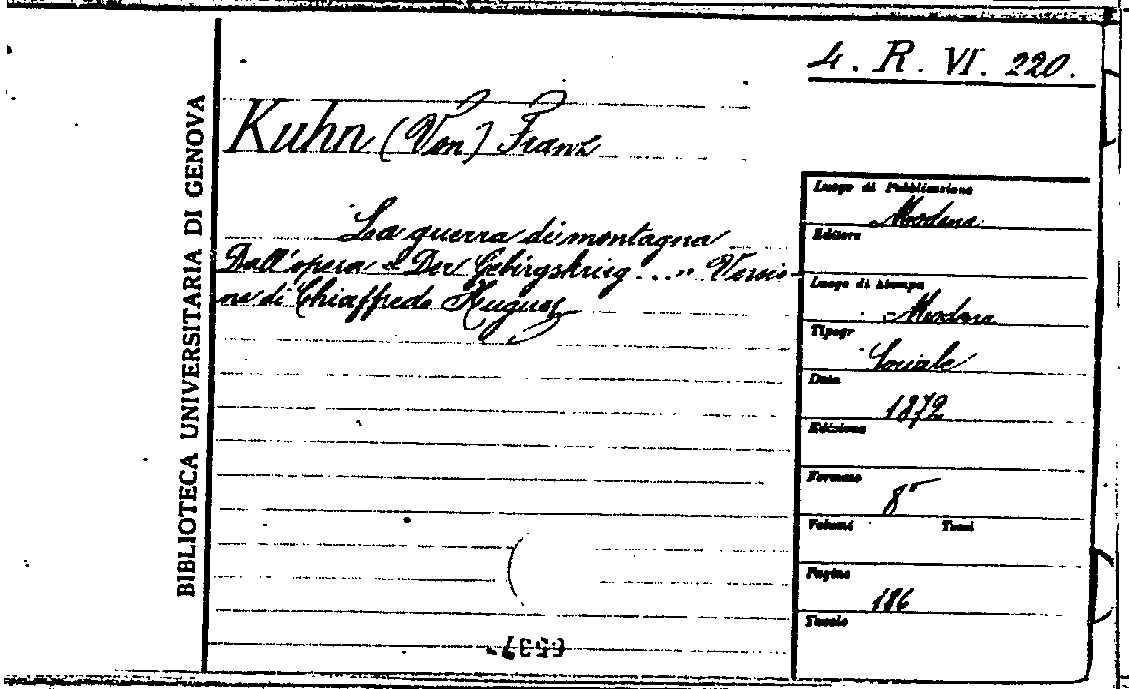 4. R. VI. 220.
BIBLIOTECA UNIVERSITARIA DI GENOVA
Kuhn (Von) Franz
La guerra di montagna
Dall'opera « Der Gebirgskrieg...» Versio-
ne di Chiaffredo Hugues
Luogo di Pubblicazione
Modena
Editore
Luogo di stampa
Modena
Tipogr
Sociale
Data
1872
Edizione
Formato
8°
Volumi Tomi
Pagine
186
Tavole